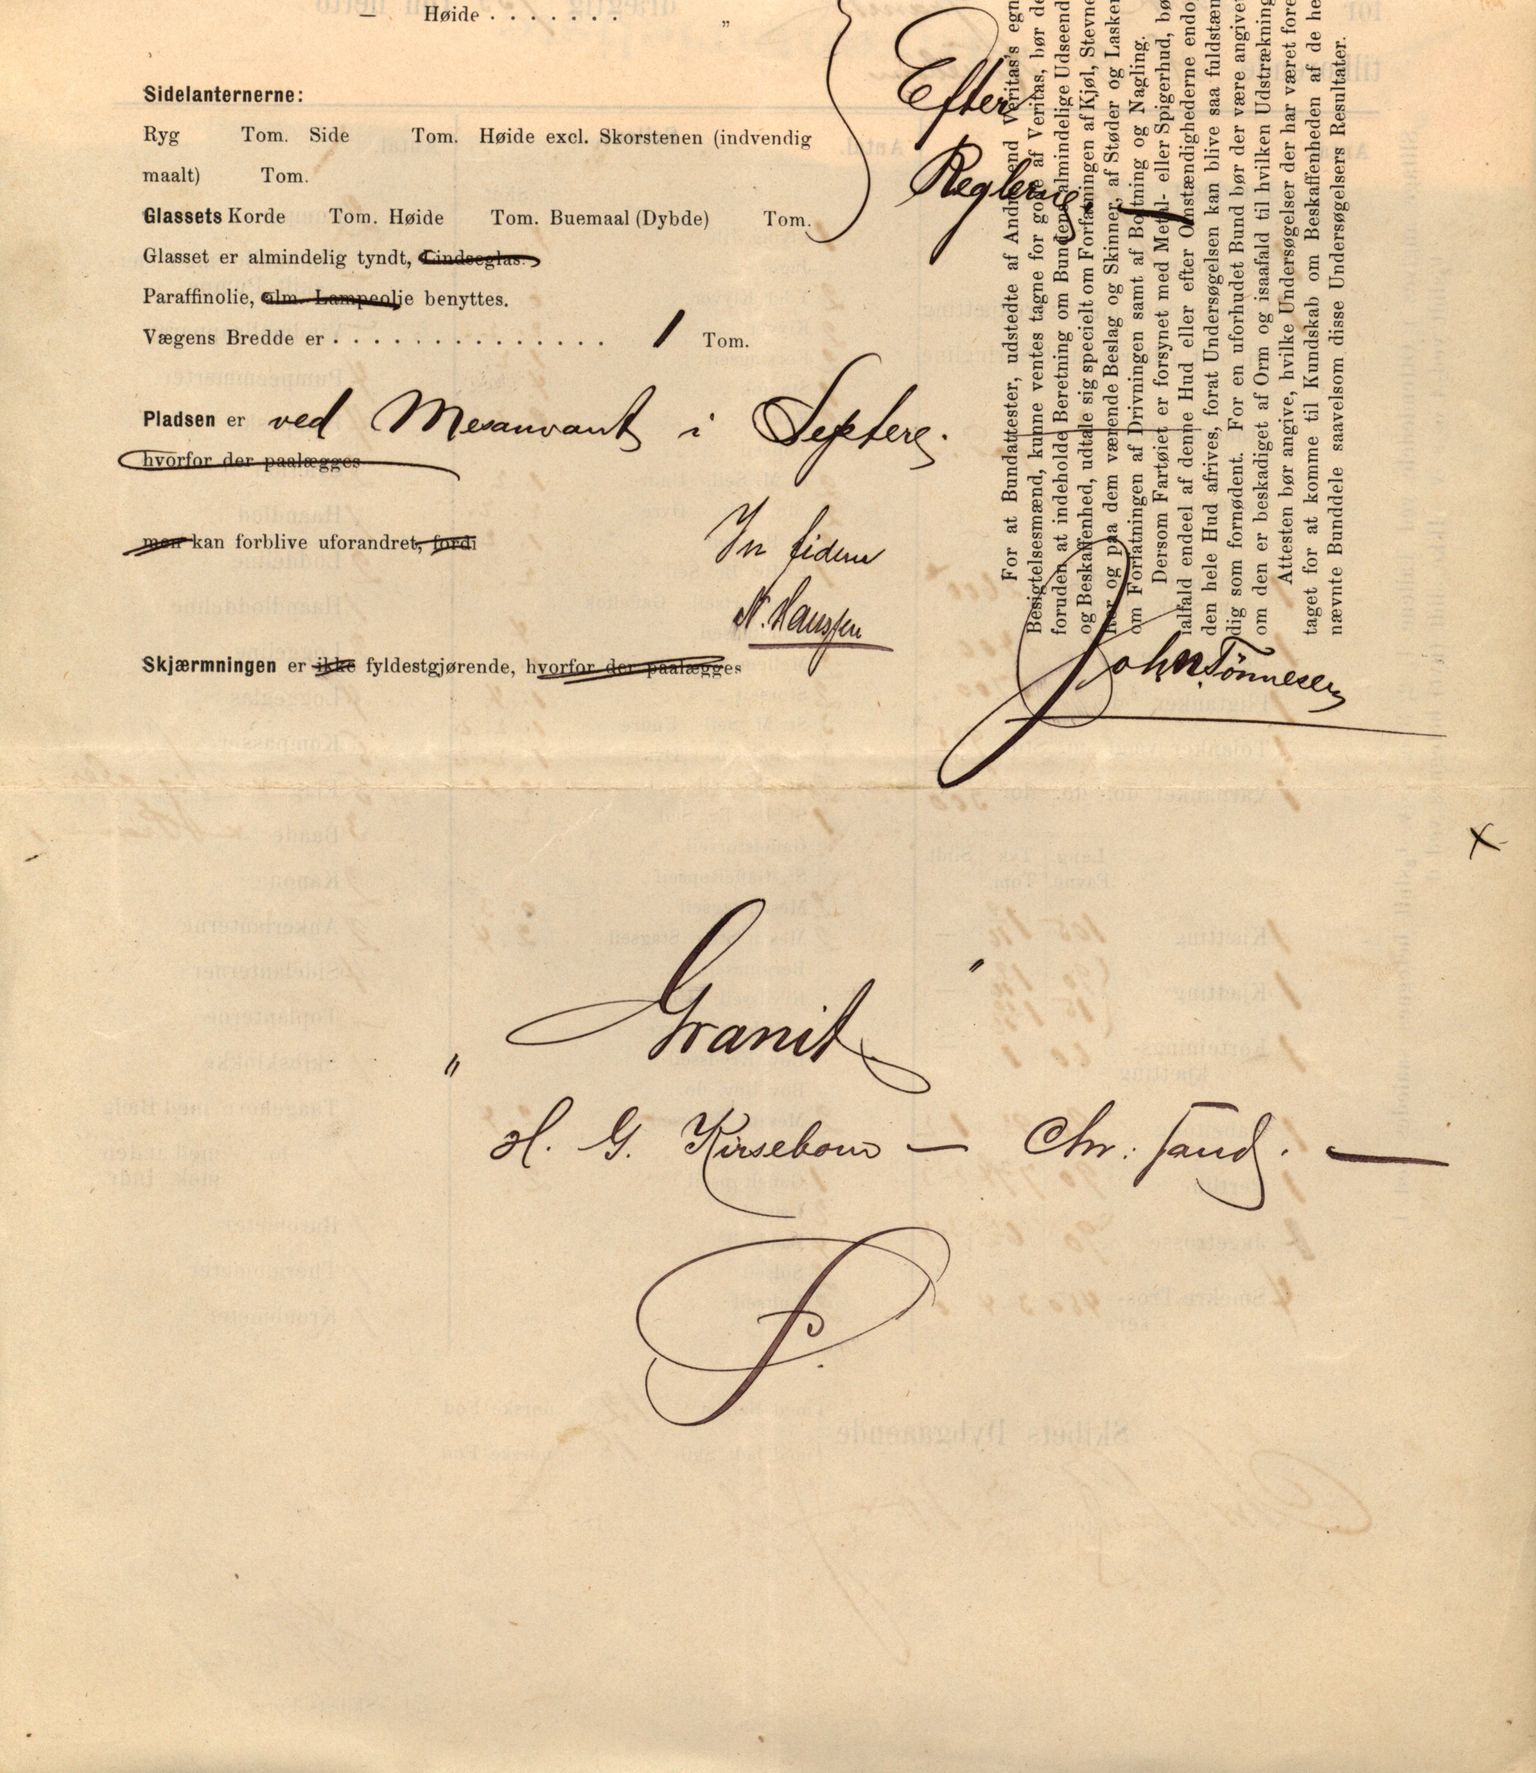 — Høide . . . . . . . „
Sidelanternerne:
Ryg Tom. Side Tom. Høide excl. Skorstenen (indvendig
maalt) Tom.
Glassets Korde Tom. Høide Tom. Buemaal (Dybde) Tom.
Glasset er almindelig tyndt, Lindseglas.
Paraffinolie, alm. Lampeolje benyttes.
Vægens Bredde er . . . . . . . . . . . . . . 1 Tom.
Efter
Reglerne
Pladsen er ved Mesanvant i Støtter.
hvorfor der paalægges
men kan forblive uforandret, fordi
In fidem
N. Hanssen
Skjærmningen er ikke fyldestgjørende, hvorfor der paalægges
For at Bundattester, udstedte af Andre end Veritas's egn
Besigtelsesmænd, kunne ventes tagne for gode af Veritas, bør de
foruden at indeholde Beretning om Bundens almindelige Udseend
og Beskaffenhed, udtale sig specielt om Forfatningen af Kjøl, Stevne
Ror og paa dem værende Beslag og Skinner, af Støder og Lasker
om Forfatningen af Drivningen samt af Boltning og Nagling.
Dersom Fartøiet er forsynet med Metal- eller Spigerhud, bø
ialfald endeel af denne Hud eller efter Omstændighederne endo
den hele Hud afrives, forat Undersøgelsen kan blive saa fuldstæn
dig som fornødent. For en uforhudet Bund bør der være angive
om den er beskadiget af Orm og isaafald til hvilken Udstrækning
Attesten bør angive, hvilke Undersøgelser der har været fore
taget for at komme til Kundskab om Beskaffenheden af de he
nævnte Bunddele saavelsom disse Undersøgelsers Resultater.
John Tönnesen
X
„Granit"
H. G. Kirsebom — Chr: sand. —
P.